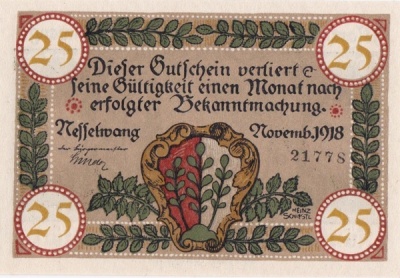 25 25
Dieser Gutschein verliert
seine Gültigkeit einen Monat nach
erfolgter Bekanntmachung.
Nesselwang Novemb. 1918
der Bürgermeister 21778
HEINZ
SCHIESTL
25 25